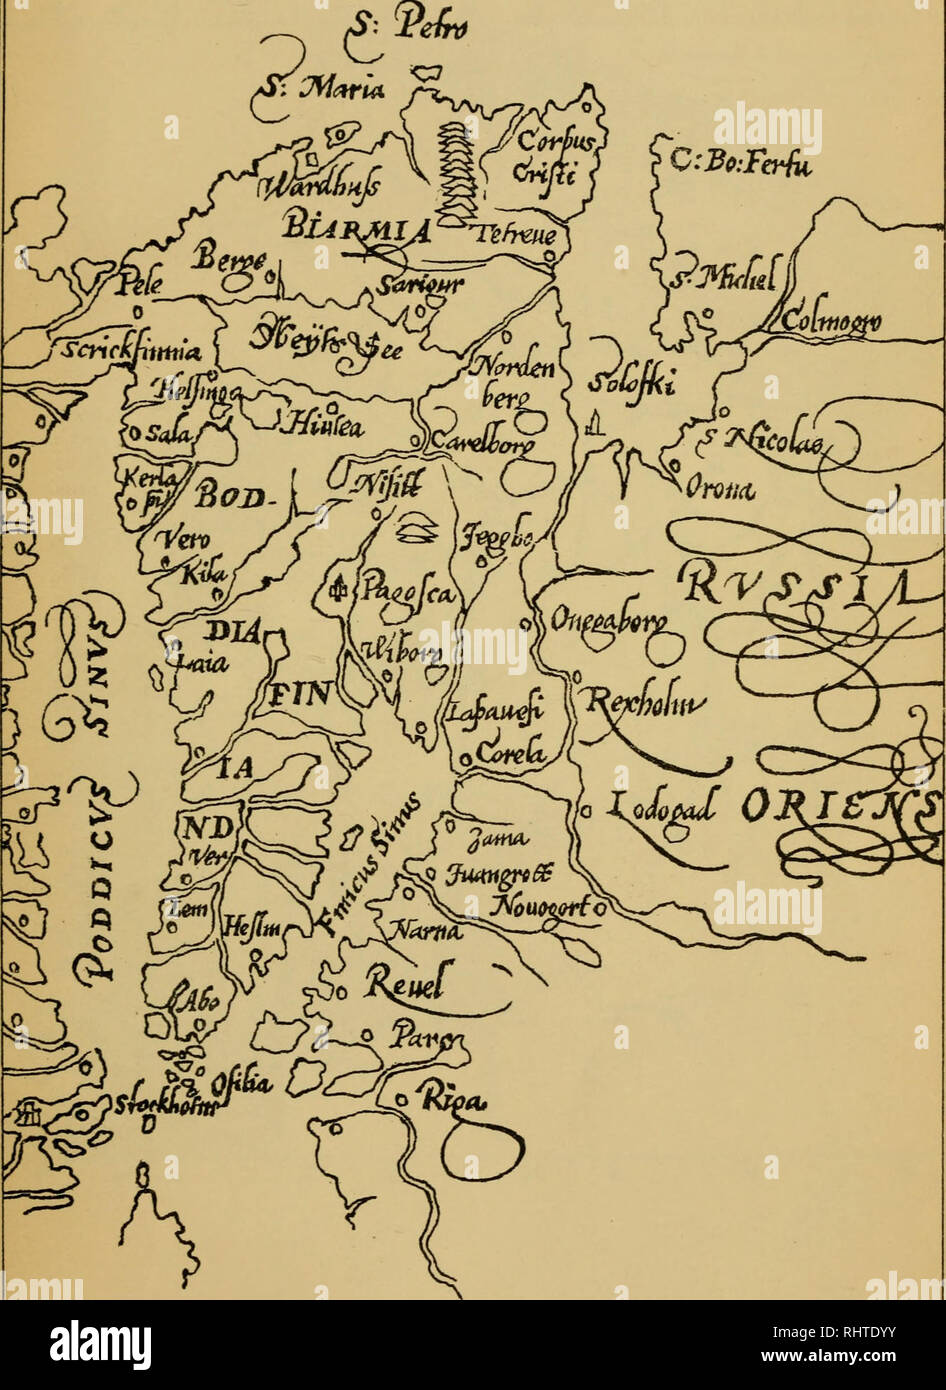 S: Petro
S: Maria
Corpus
Cristi
C: Bo: Ferfu
Wardhuſs
BIARMIA
Tefreue
Berge
Pele
Sariour
S. Michel
Colmogro
Scrickfinnia
Neyhs See
Norden
berg
Soloſki
Helſinga
Hiulea
Sala
Carelborg
S Nicolas
Kerla
pil
Nifitt
BOD-
Orona
Vero
Jeggbo
Kila
Pagoſca
RVSSIA
Onegaborg
DIA
Laia
Wiborg
FIN
Rexholm
Laſaueſi
IA
Corela
PODDICVS SINVS
Lodogad
ORIENS
ND
Ver
Finicus Sinus
Zama
Juangrott
Nouogorto
Lem
Heſlm
Narna
Reuel
Abo
Parg
Oſilia
Stockholm
Riga
alamy
Image ID: RHTDYY
www.alamy.com